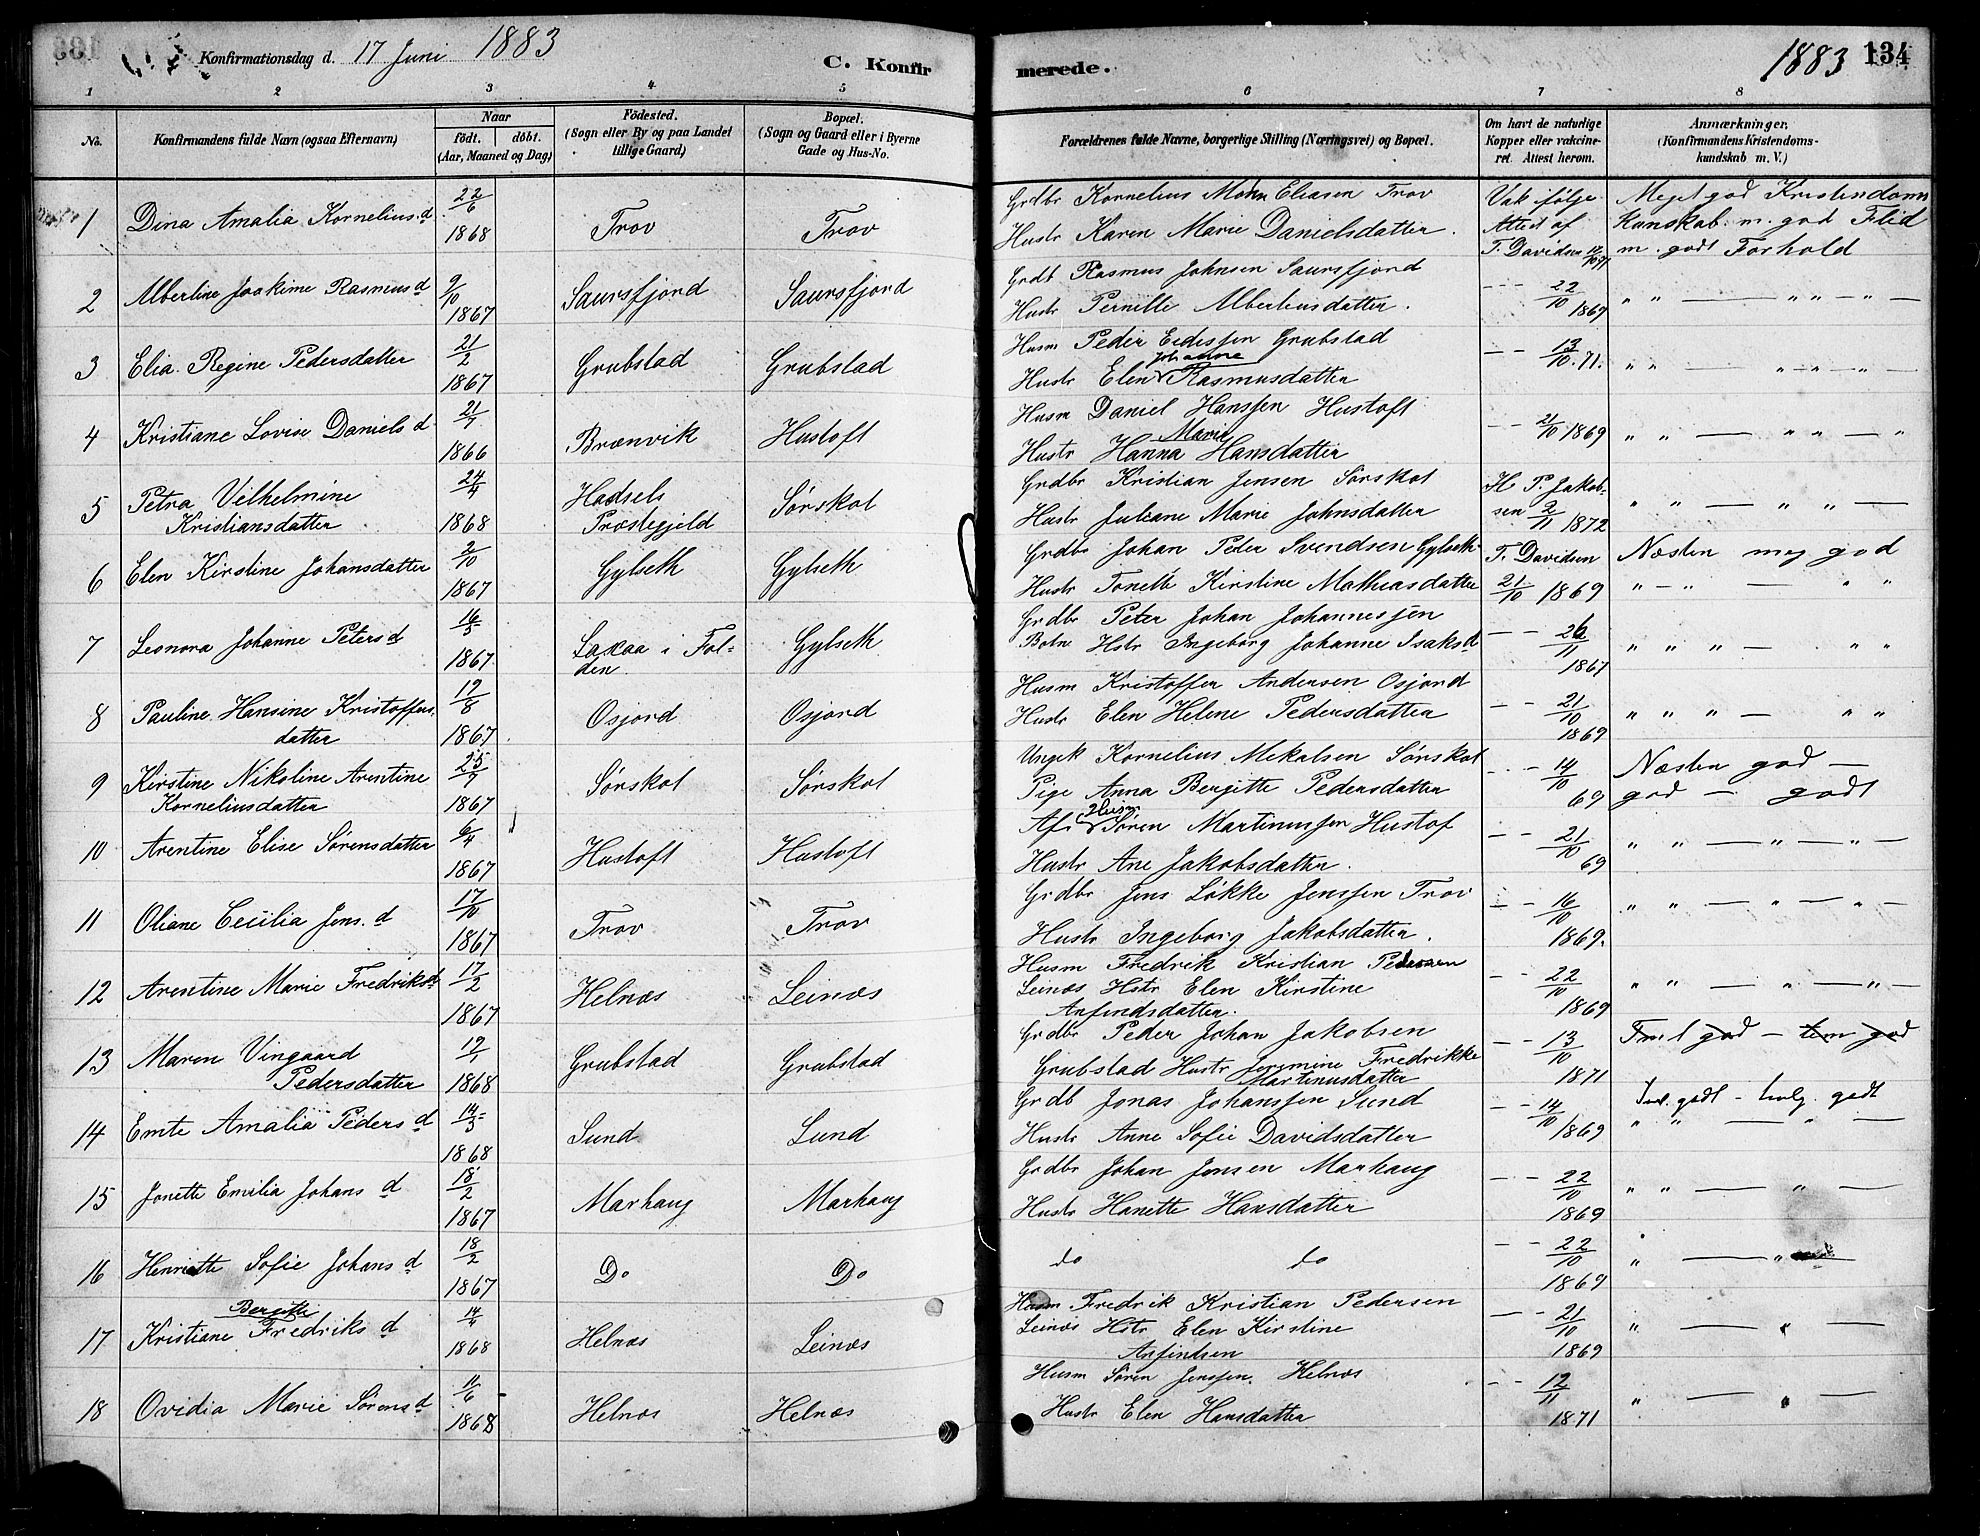 Konfirmationsdag d. 17 Juni 1883 C. Konfirmerede. 1883 134
1 2 3 4 5 6 7 8
No. Konfirmandens fulde Navn (ogsaa Efternavn) Naar født. døbt. (Aar, Maaned og Dag) Fødested. (Sogn eller By og paa Landet tillige Gaard) Bopæl. (Sogn og Gaard eller i Byerne Gade og Hus-No. Forældrenes fulde Navne, borgerlige Stilling (Næringsvei) og Bopæl. Om havt de naturlige Kopper eller vakcineret. Attest herom. Anmærkninger, (Konfirmandens Kristendomskundskab m. V.)
1 Dina Amalia Kornelius.d 22/6 1868 Trov Trov Grdbr Kornelius Eliasen Trov
Hustr Karen Marie Danielsdatter. Vak ifølge Attest af T. Davidsen Meget god Kristendoms Kunskab. m. god Flid m. godt Forhold
2 Alberline Joakime Rasmus d 9/10 1867 Saursfjord Saursfjord Grdb Rasmus Johnsen Saursfjord
Hustr Pernille Albertusdatter. - - 22/10 1869 " " — " " — " —
3 Elia Regine Pedersdatter 21/2 1867 Grubstad Grubstad Husm Peder Edissen Grubstad
Hustr Elen Johanne Rasmusdatter — - 13/10.71. " " — " — " —
4 Kristiane Lovise Daniels d 21/7 1866 Brænvik Hustoft Husm Daniel Hanssen Hustoft
Hustr Hanna Marie Hansdatter - - 21/10 1869 " " — " " — "
5 Petra Vilhelmine Kristiansdatter 24/4 1868 Hadsels Præstegjeld Sørskot Grdbr Kristian Jensen Sørskot
Hustr Juliane Marie Johnsdatter H. P. Jakobsen 2/11 1872 " " — " " —
6 Elen Kirstine Johansdatter 2/10 1867 Gylseth Gylseth Grdbr Johan Peter Svendsen Gylseth
Hustr Tonette Kirstine Mathiasdatter T. Davidsen 21/10 1869 Næsten meg god
" — " — " "
7 Leonora Johanne Peters d 16/5 1867 Laxaa i Folden Gylseth Grdbr Peter Johan Johannessen
Botn Hstr Ingeborg Johanne Isaks d — - 26/11 1867 " " " — " "
8 Pauline Hansine Kristoffersdatter 19/8 1867 Osjord Osjord Husm Kristoffer Andersen Osjord
Hustr Elen Helene Pedersdatter - - 21/10 1869 " " " — " "
9 Kirstine Nikoline Arentine Korneliusdatter 25/7 1867 Sørskot Sørskot Ungk Kornelius Mekalsen Sørskot
Pige Anna Bergitte Pedersdatter - - 14/10 69 Næsten god —
god — godt
10 Arentine Elise Sørensdatter 6/4 1867 Hustoft Hustoft Afd Husm Søren Martinussen Hustof
Hustr Ane Jakobsdatter. - - 21/10 69 " " — " — " —
11 Oliane Cecilia Jens. d 17/10 1867 Trov Trov Grdbr Jens Løkke Jenssen Trov
Hustr Ingeborg Jakobsdatter. - - 16/10 1869. " " — " — " —
12 Arentine Marie Fredriks d 17/2 1867 Helnæs Leinæs Husm Fredrik Kristian Pedersen
Leinæs Hstr Elen Kirstine
Anfindsdatter. - - 22/10 1869 " " — " — " —
13 Maren Vingaard Pedersdatter 19/1 1868 Grubstad Grubstad Grdbr Peder Johan Jakobsen
Grubstad Hustr Jermine Fredrikke
Martinusdatter - - 13/10 1871 god — god
14 Emte Amalia Peders d 14/5 1868 Sund Sund Grdb Jonas Johanssen Sund
Hustr Anne Sofie Davidsdatter - - 14/10 1869 godt — godt
" " — " —
15 Jonette Emilia Johans d 18/2 1867 Marhaug Marhaug Grdbr Johan Jensen Marhaug
Hustr Hanette Hansdatter - - 22/10 1869 " " — " —
16 Henriette Sofie Johans d 18/2 1867 Do Do do do - - 22/10 1869 " — " —
17 Kristiane Bergitte Fredriks d 14/4 1868 Helnæs Leinæs Husm Fredrik Kristian Pedersen
Leinæs Hstr Elen Kirstine
Anfindsen — - 21/10 1869 " — " —
18 Ovidia Marie Sørens d 11/6 1868 Helnæs Helnæs Husm Søren Jenssen. Helnæs
Hustr Elen Hansdatter - - 12/11 1871 " — " —